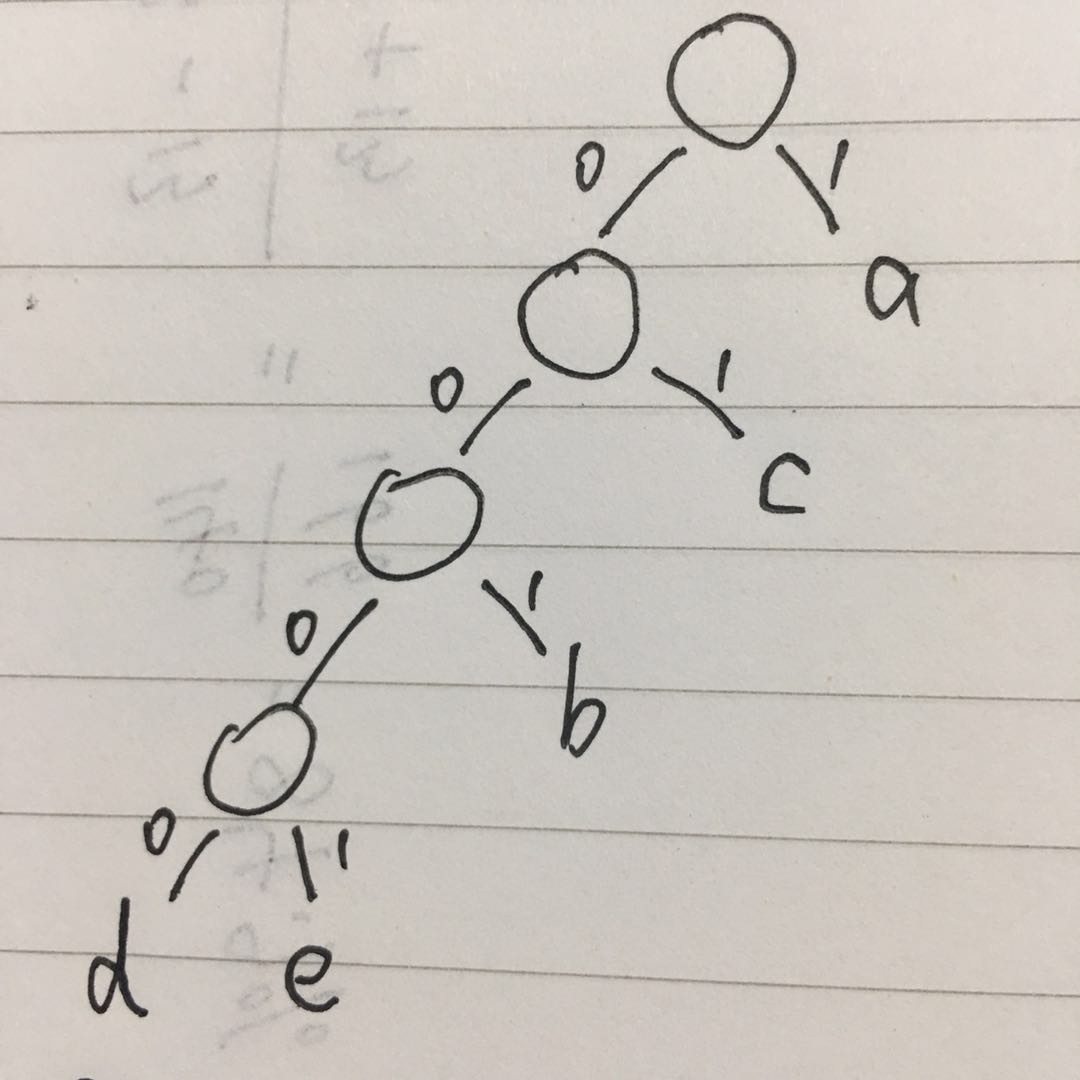 0 1
a
0 1
c
0 1
b
0 1
d e